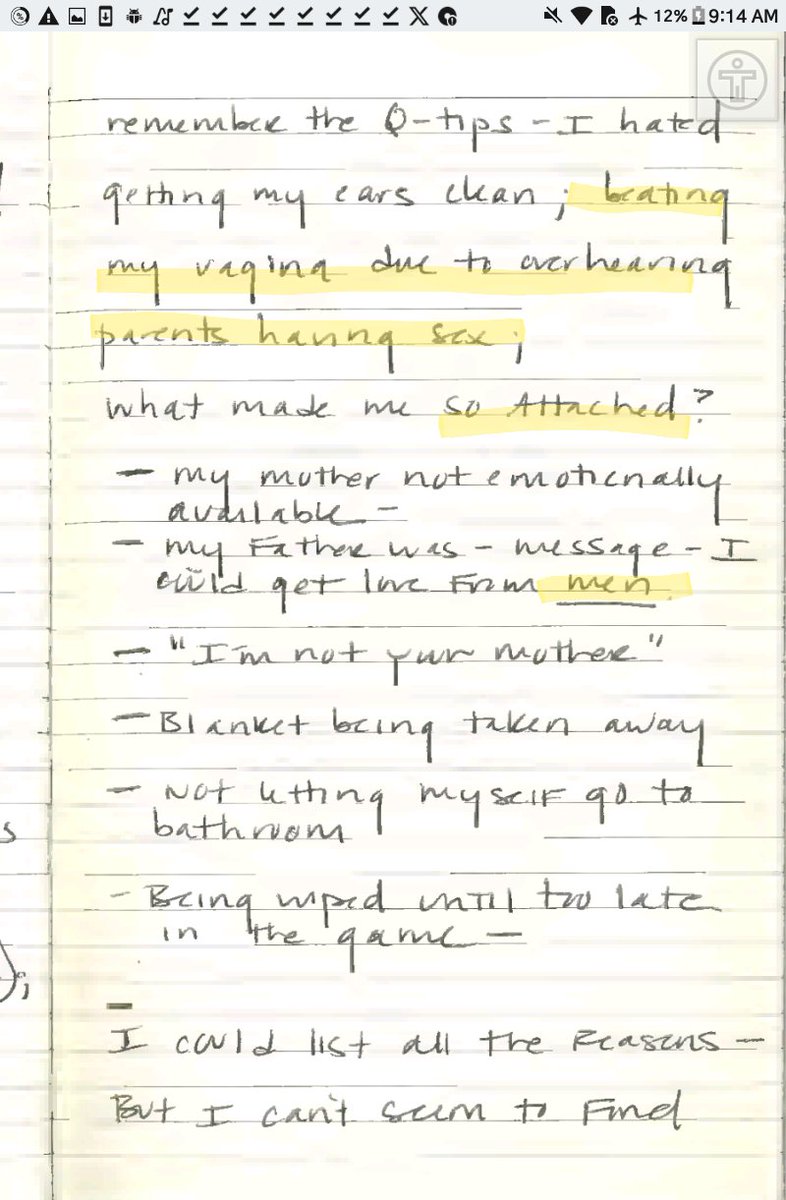 12% 9:14 AM
remember the Q-tips - I hated
getting my ears clean; beating
my vagina due to overhearing
parents having sex;
What made me so Attached?
- my mother not emotionally
available -
- my Father was - message - I
could get love From men
- "I'm not your mother"
- Blanket being taken away
- Not letting myself go to
bathroom
- Being wiped until too late
in the game -
-
I could list all the Reasons -
But I can't seem to Find